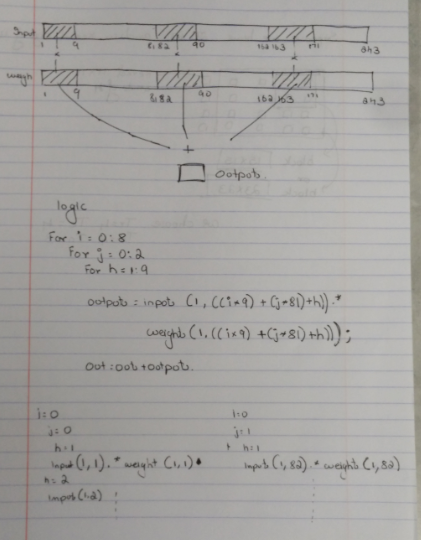 Input
1 9 81 82 90 162 163 171 243
weight
1 9 81 82 90 162 163 171 243
+
output
logic
For i = 0:8
For j = 0:2
For h = 1:9
output = input (1, ((i*9) + (j*81)+h)) .*
weight (1, ((i*9) + (j*81)+h)) ;
out = out + output.
i=0
j=0
h=1
input (1,1) .* weight (1,1)
h=2
input (1,2)
i=0
j=1
h=1
input (1,82) .* weight (1,82)